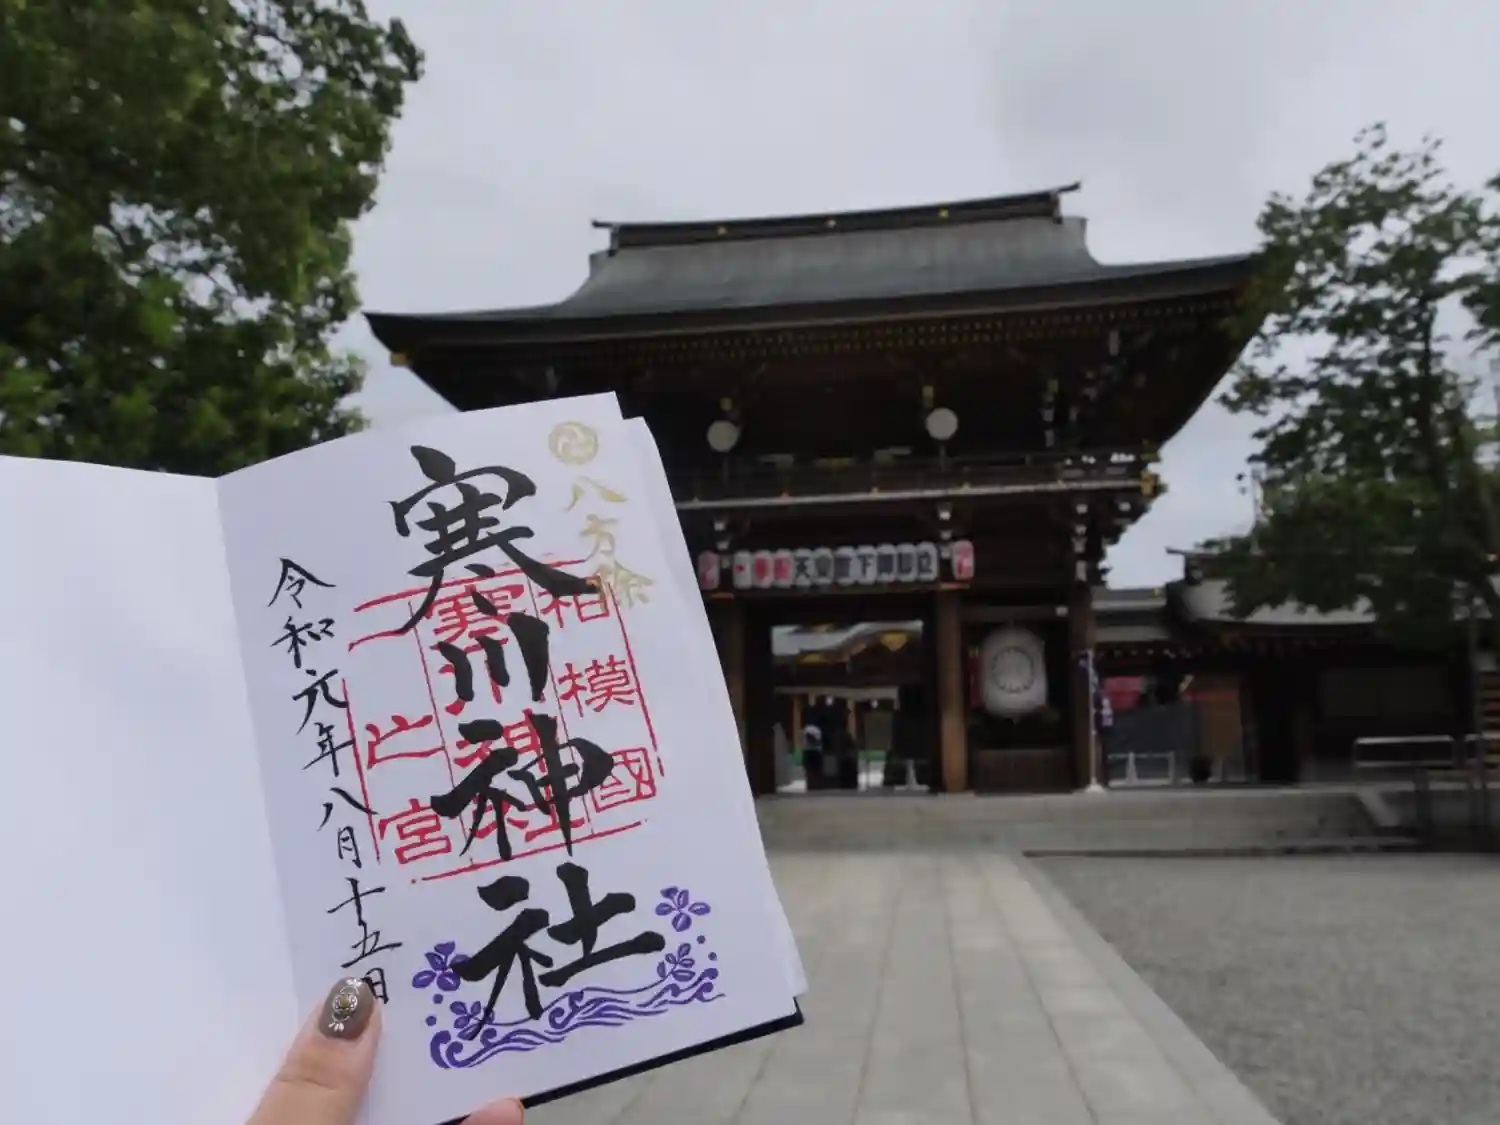 八方除
寒川神社
相模國
寒川神社
一之宮
令和元年八月十五日
奉祝天皇陛下御即位